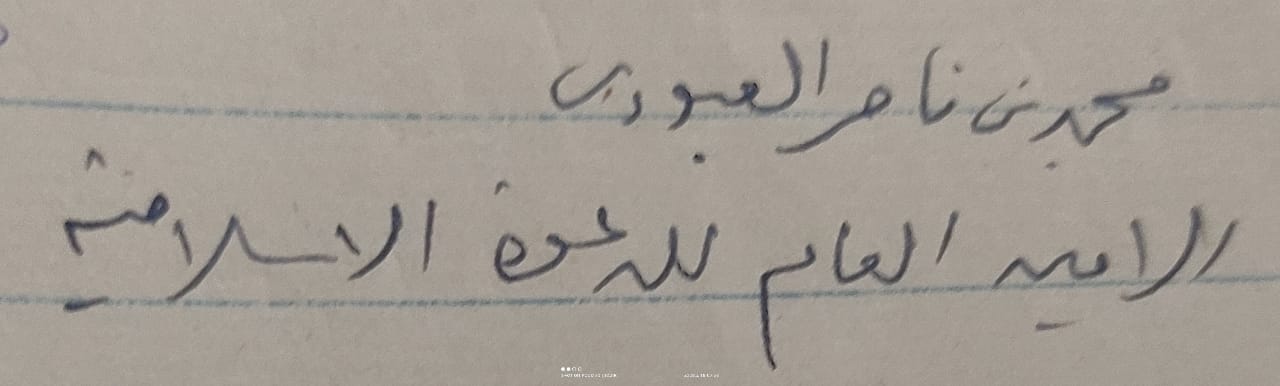 محمد بن ناصر العبودي
الامين العام للدعوة الاسلامية